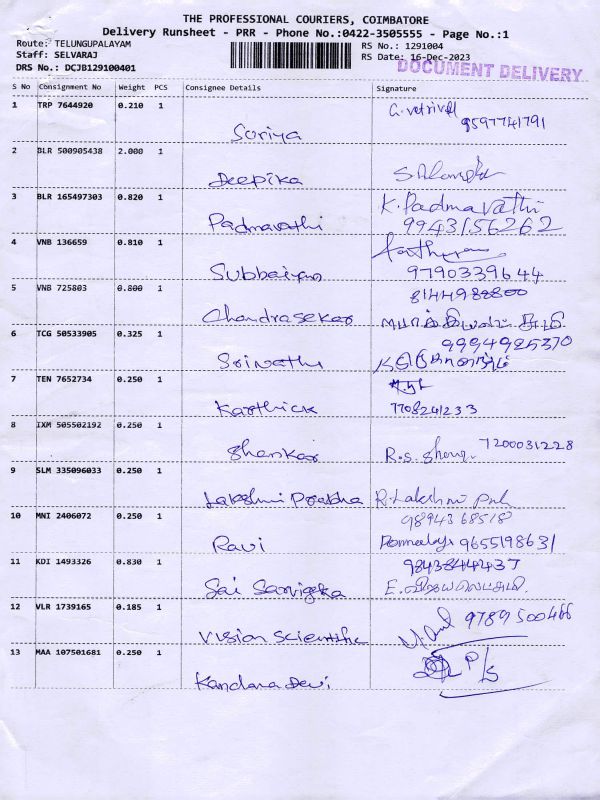 THE PROFESSIONAL COURIERS, COIMBATORE
Delivery Runsheet - PRR - Phone No.:0422-3505555 - Page No.:1
Route: TELUNGUPALAYAM
Staff: SELVARAJ
DRS No.: DCJB129100401
RS No.: 1291004
RS Date: 16-Dec-2023
DOCUMENT DELIVERY
S No Consignment No Weight PCS Consignee Details Signature
1 TRP 7644920 0.210 1
Suriya
9597741791
2 BLR 500905438 2.000 1
Deepika
3 BLR 165497303 0.820 1
Padmavathi
K. Padmavathi
9943156262
4 VNB 136659 0.810 1
9790339644
5 VNB 725803 0.800 1
Chandrasekar
8144988800
6 TCG 50533905 0.325 1
9994985370
7 TEN 7652734 0.250 1
Karthick
7708241233
8 IXM 505502192 0.250 1
Shankar
R.S.
7200031228
9 SLM 335096033 0.250 1
Lakshmi Prabha
R. Lakshmi
10 MNI 2406072 0.250 1
Ravi
9894368518
9655198631
11 KDI 1493326 0.830 1
Sai
9843844437
12 VLR 1739165 0.185 1
Vision Scientific
9789500466
13 MAA 107501681 0.250 1
Kandana Devi